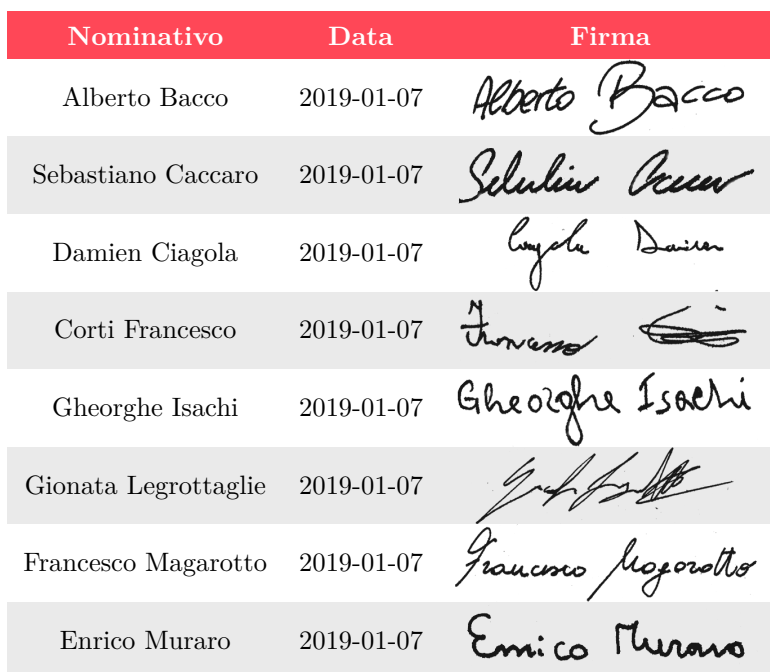 Nominativo Data Firma
Alberto Bacco 2019-01-07 Alberto Bacco
Sebastiano Caccaro 2019-01-07
Damien Ciagola 2019-01-07 Ciagola Damien
Corti Francesco 2019-01-07 Francesco
Gheorghe Isachi 2019-01-07 Gheorghe Isachi
Gionata Legrottaglie 2019-01-07
Francesco Magarotto 2019-01-07 Francesco Magarotto
Enrico Muraro 2019-01-07 Enrico Muraro